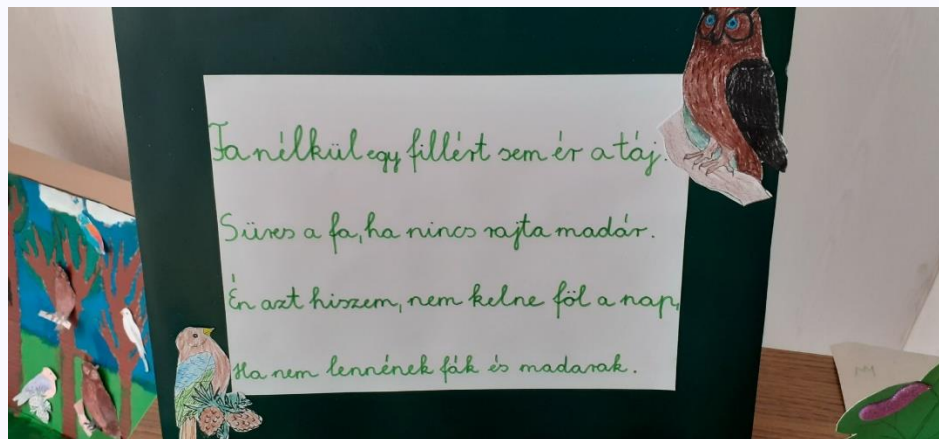 Fa nélkül egy fillért sem ér a táj.
Süves a fa, ha nincs rajta madár.
Én azt hiszem, nem kelne föl a nap,
Ha nem lennének fák és madarak.